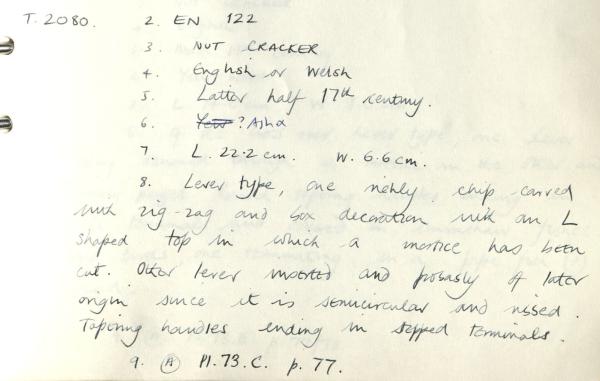 T.2080. 2. EN 122
3. NUT CRACKER
4. English or Welsh
5. Latter half 17th century.
6. Yew ? Ash
7. L. 22.2 cm. W. 6.6 cm.
8. Lever type, one richly chip-carved
with zig-zag and box decoration with an L
shaped top in which a mortice has been
cut. Other lever inserted and probably of later
origin since it is semicircular and ribbed.
Tapering handles ending in stepped terminals.
9. A Pl.73.C. p.77.